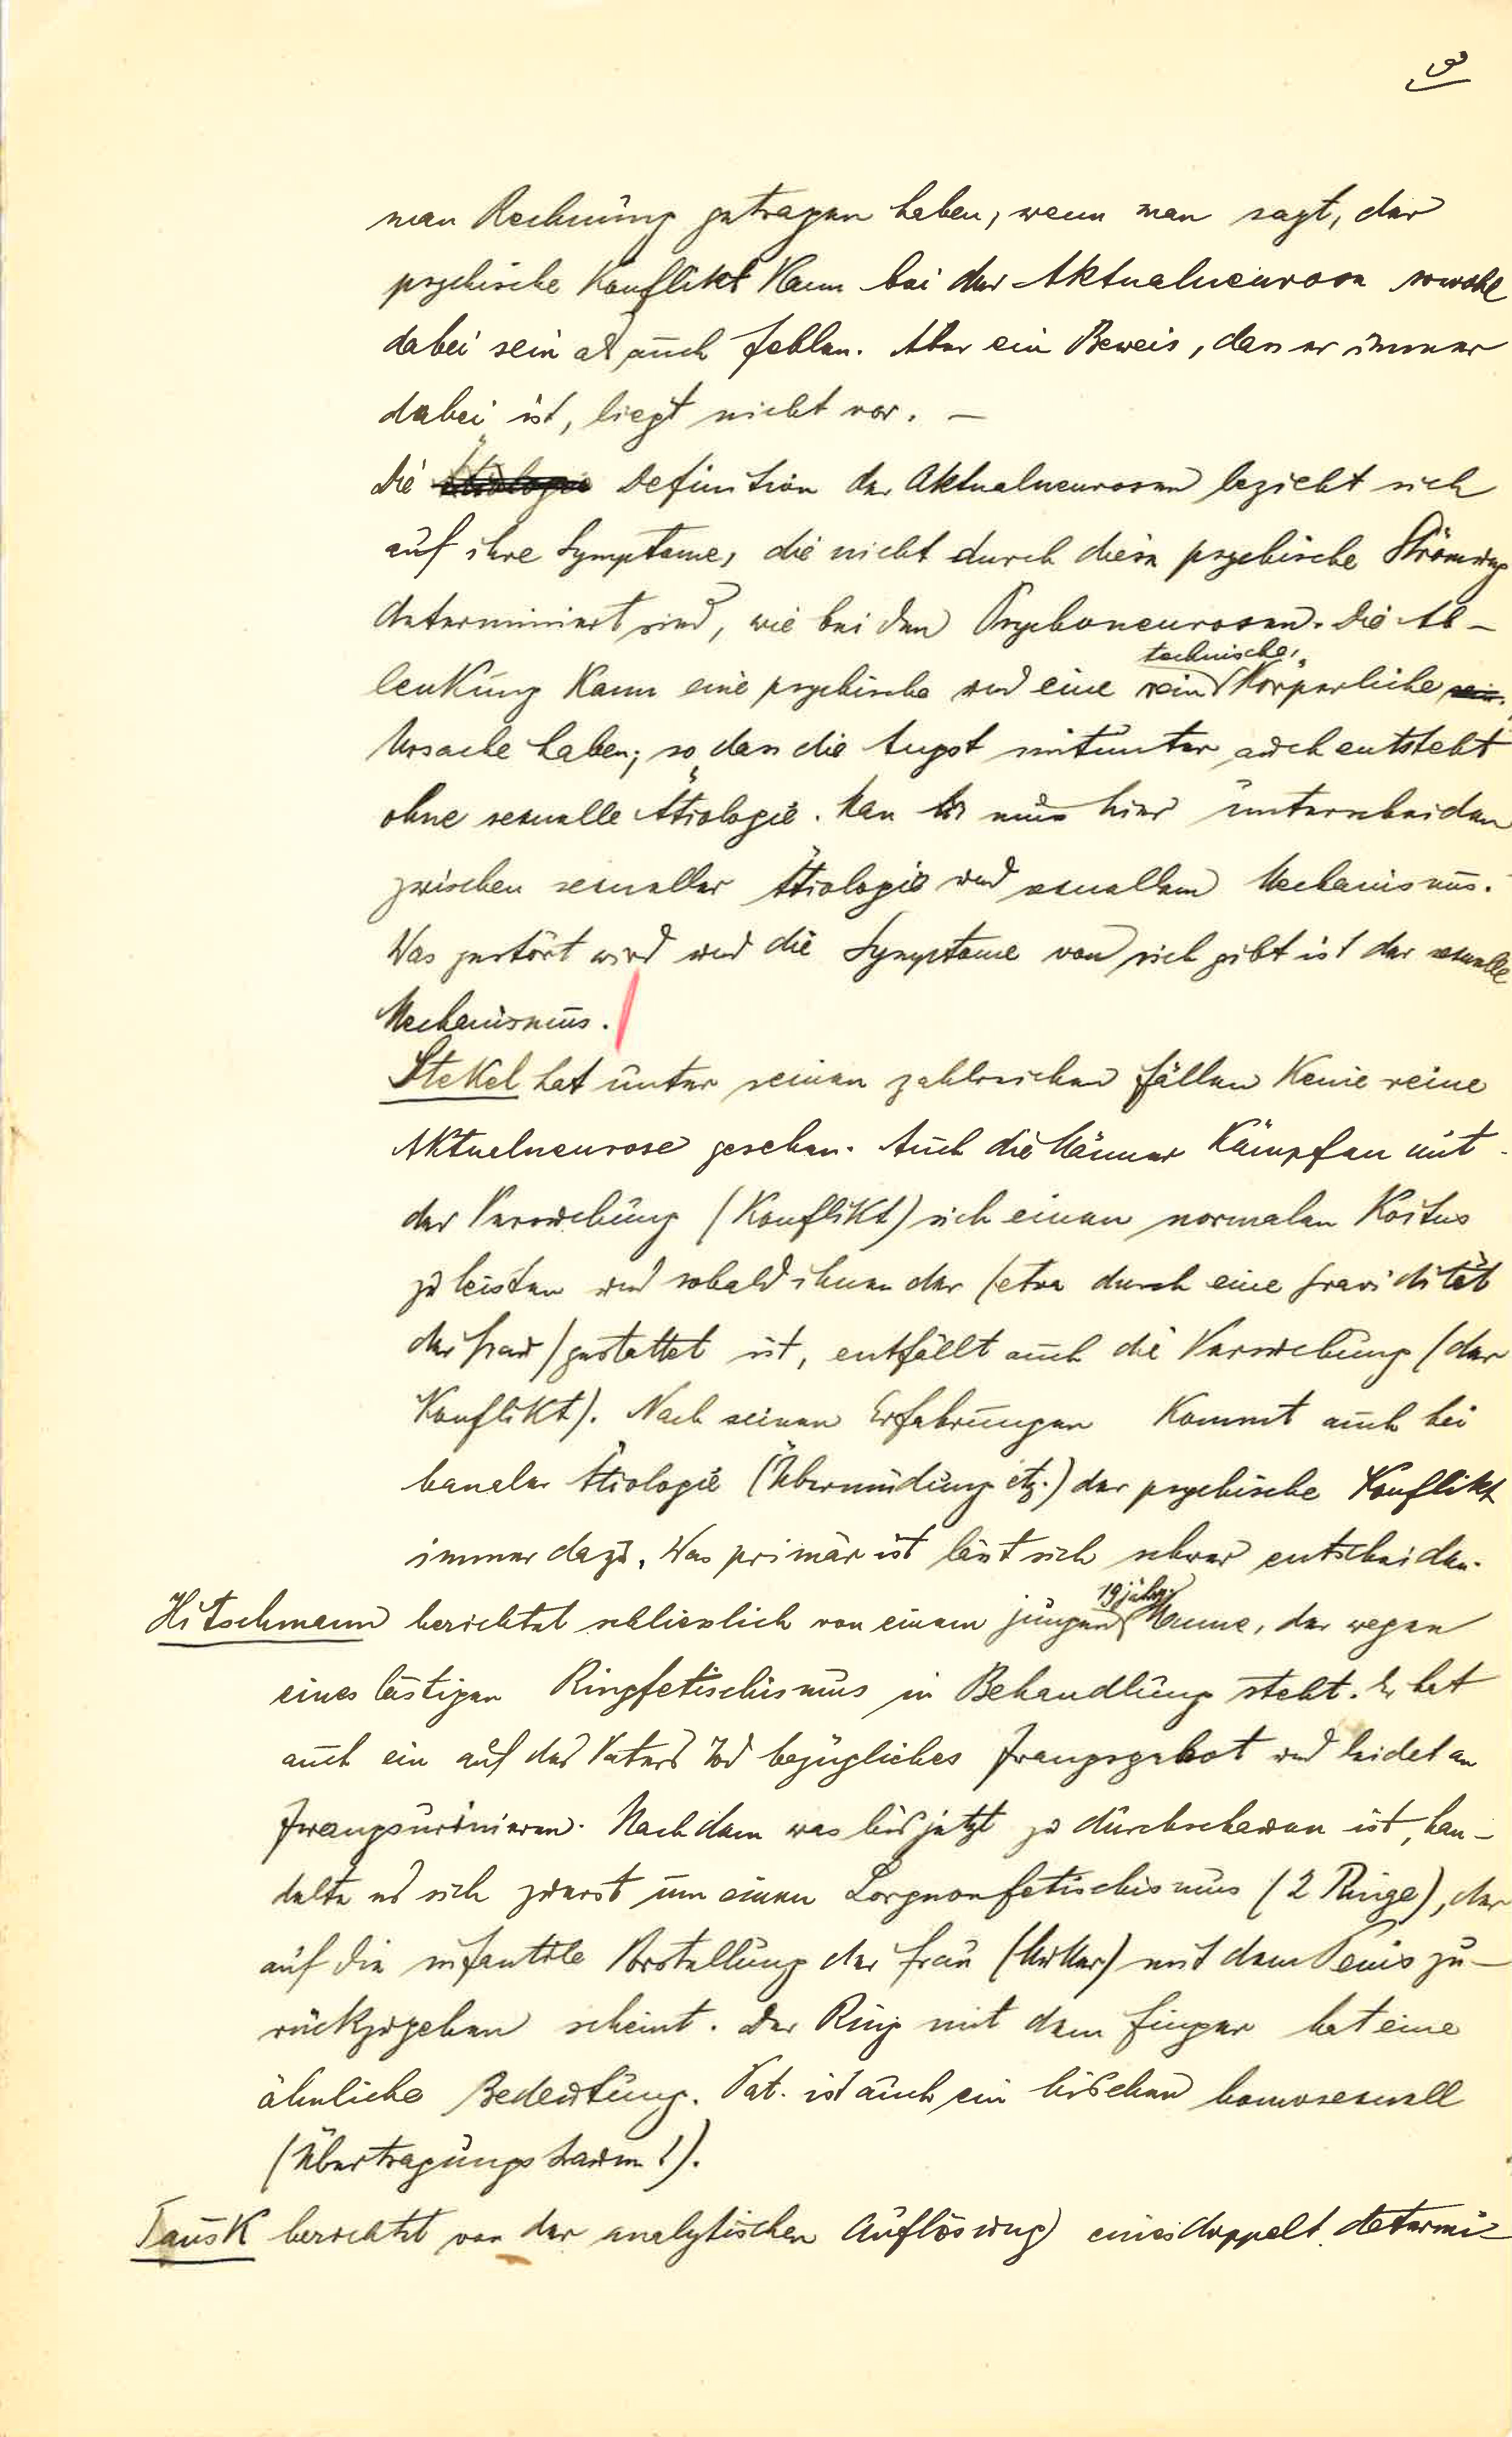 3
man Rechnung getragen haben, wenn man sagt, der
psychische Konflikt kann bei der Aktualneurose sowohl
dabei sein als auch fehlen. Aber ein Beweis, dass er immer
dabei ist, liegt nicht vor. —
Die Ätiologie Definition der Aktualneurosen bezieht sich
auf ihre Symptome, die nicht durch diese psychische Strömung
determiniert sind, wie bei den Psychoneurosen. Die Ab-
technische,
lenkung kann eine psychische und eine rein körperliche sein
Ursache haben; so dass die Angst mitunter auch entsteht
ohne sexuelle Ätiologie. Man muss hier unterscheiden
zwischen sexueller Ätiologie und sexuellem Mechanismus.
Was gestört wird und die Symptome von sich gibt ist der sexuelle
Mechanismus.
Stekel hat unter seinen zahlreichen Fällen keine reine
Aktualneurose gesehen. Auch die Männer kämpfen mit
der Versuchung (Konflikt) sich einen normalen Koitus
zu leisten und sobald ihnen der (etwa durch eine Gravidität
der Frau) gestattet ist, entfällt auch die Versuchung (der
Konflikt). Nach seinen Erfahrungen kommt auch bei
banaler Ätiologie (Übermüdung etz.) der psychische Konflikt
immer dazu. Was primär ist lässt sich schwer entscheiden.
19jähr.
Hitschmann berichtet schliesslich von einem jungen Manne, der wegen
eines lästigen Ringfetischismus in Behandlung steht. Er hat
auch ein auf des Vaters Tod bezügliches Zwangsgebot und leidet an
Zwangsurinieren. Nach dem was bis jetzt zu durchschauen ist, han-
delte es sich zuerst um einen Lorgnonfetischismus (2 Ringe), der
auf die infantile Vorstellung der Frau (Mutter) mit dem Penis zu-
rückzugehen scheint. Der Ring mit dem Finger hat eine
ähnliche Bedeutung. Pat. ist auch ein bischen homosexuell
(Übertragungstraum!).
Tausk berichtet von der analytischen Auflösung eines doppelt determi-